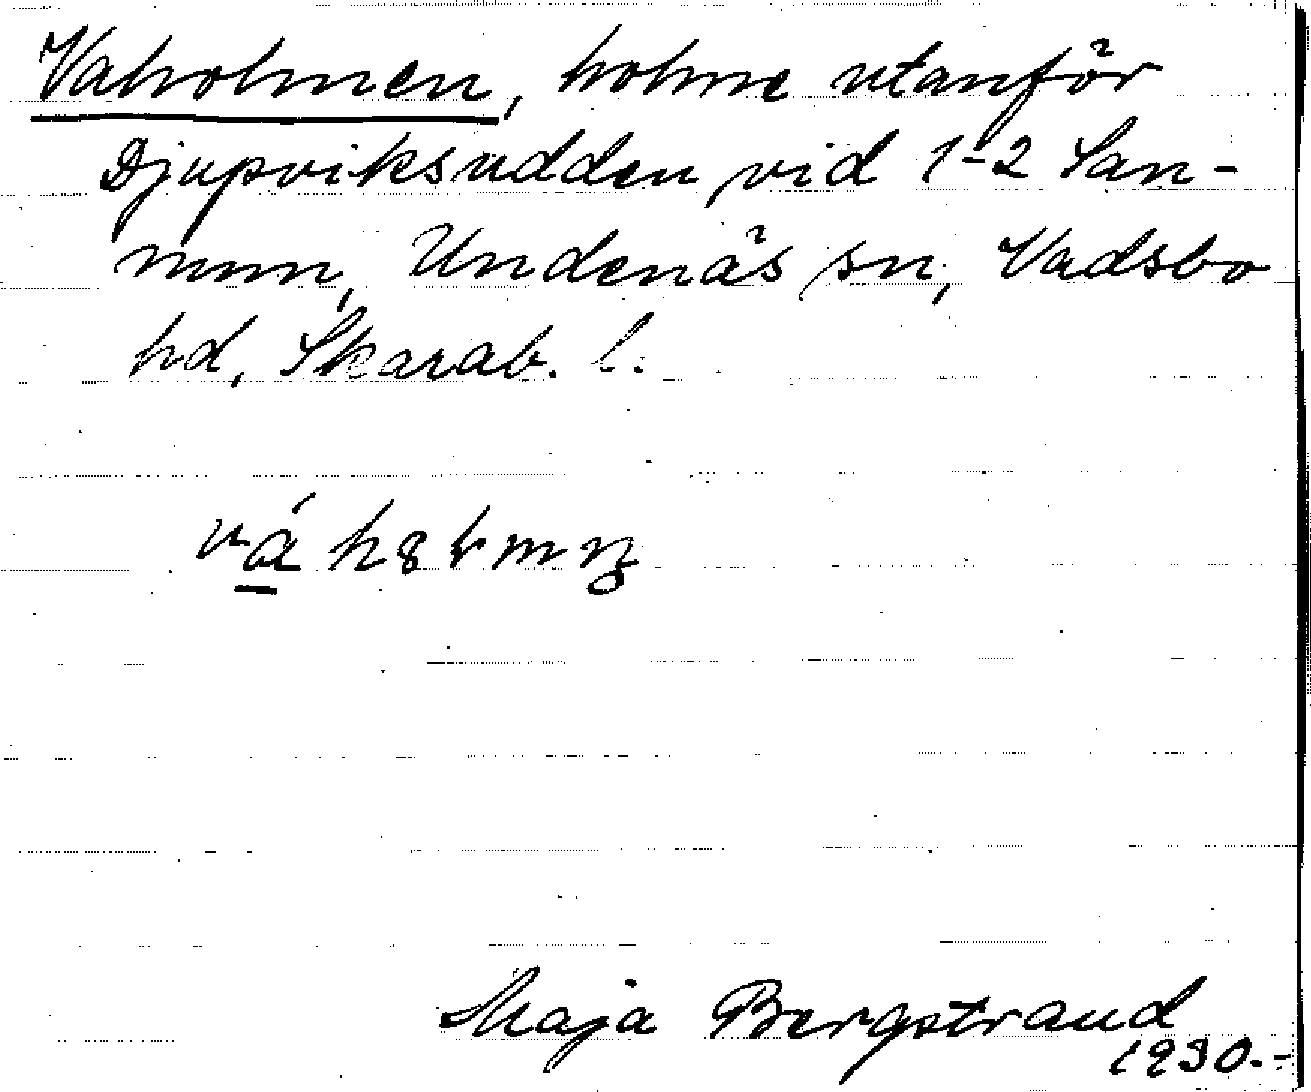 Vaholmen, holme utanför
Djupviksudden vid 1-2 San-
num, Undenäs sn, Vadsbo
hd, Skarab. l.
Maja Bergstrand
1930.-